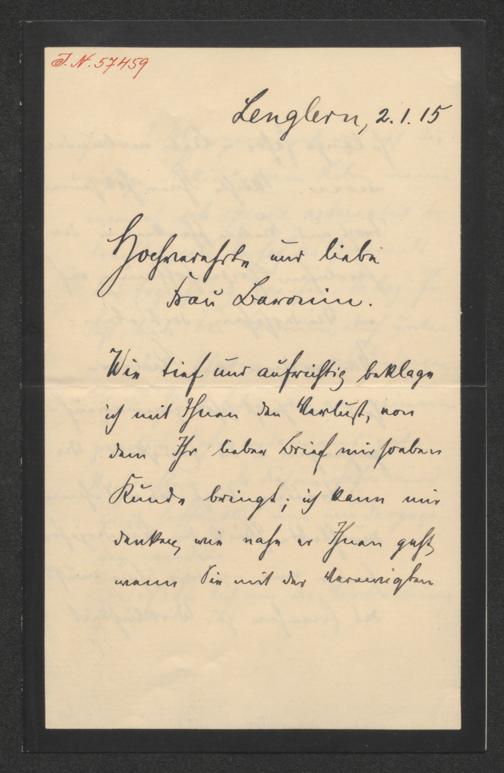 J. N. 57459
Lenglern, 2. 1. 15
Hochverehrte und liebe
Frau Baronin.
Wie tief und aufrichtig beklage
ich mit Ihnen den Verlust, von
dem Ihr lieber Brief mir soeben
Kunde bringt; ich kann mir
denken, wie nahe er Ihnen geht,
wenn Sie mit der Verewigten